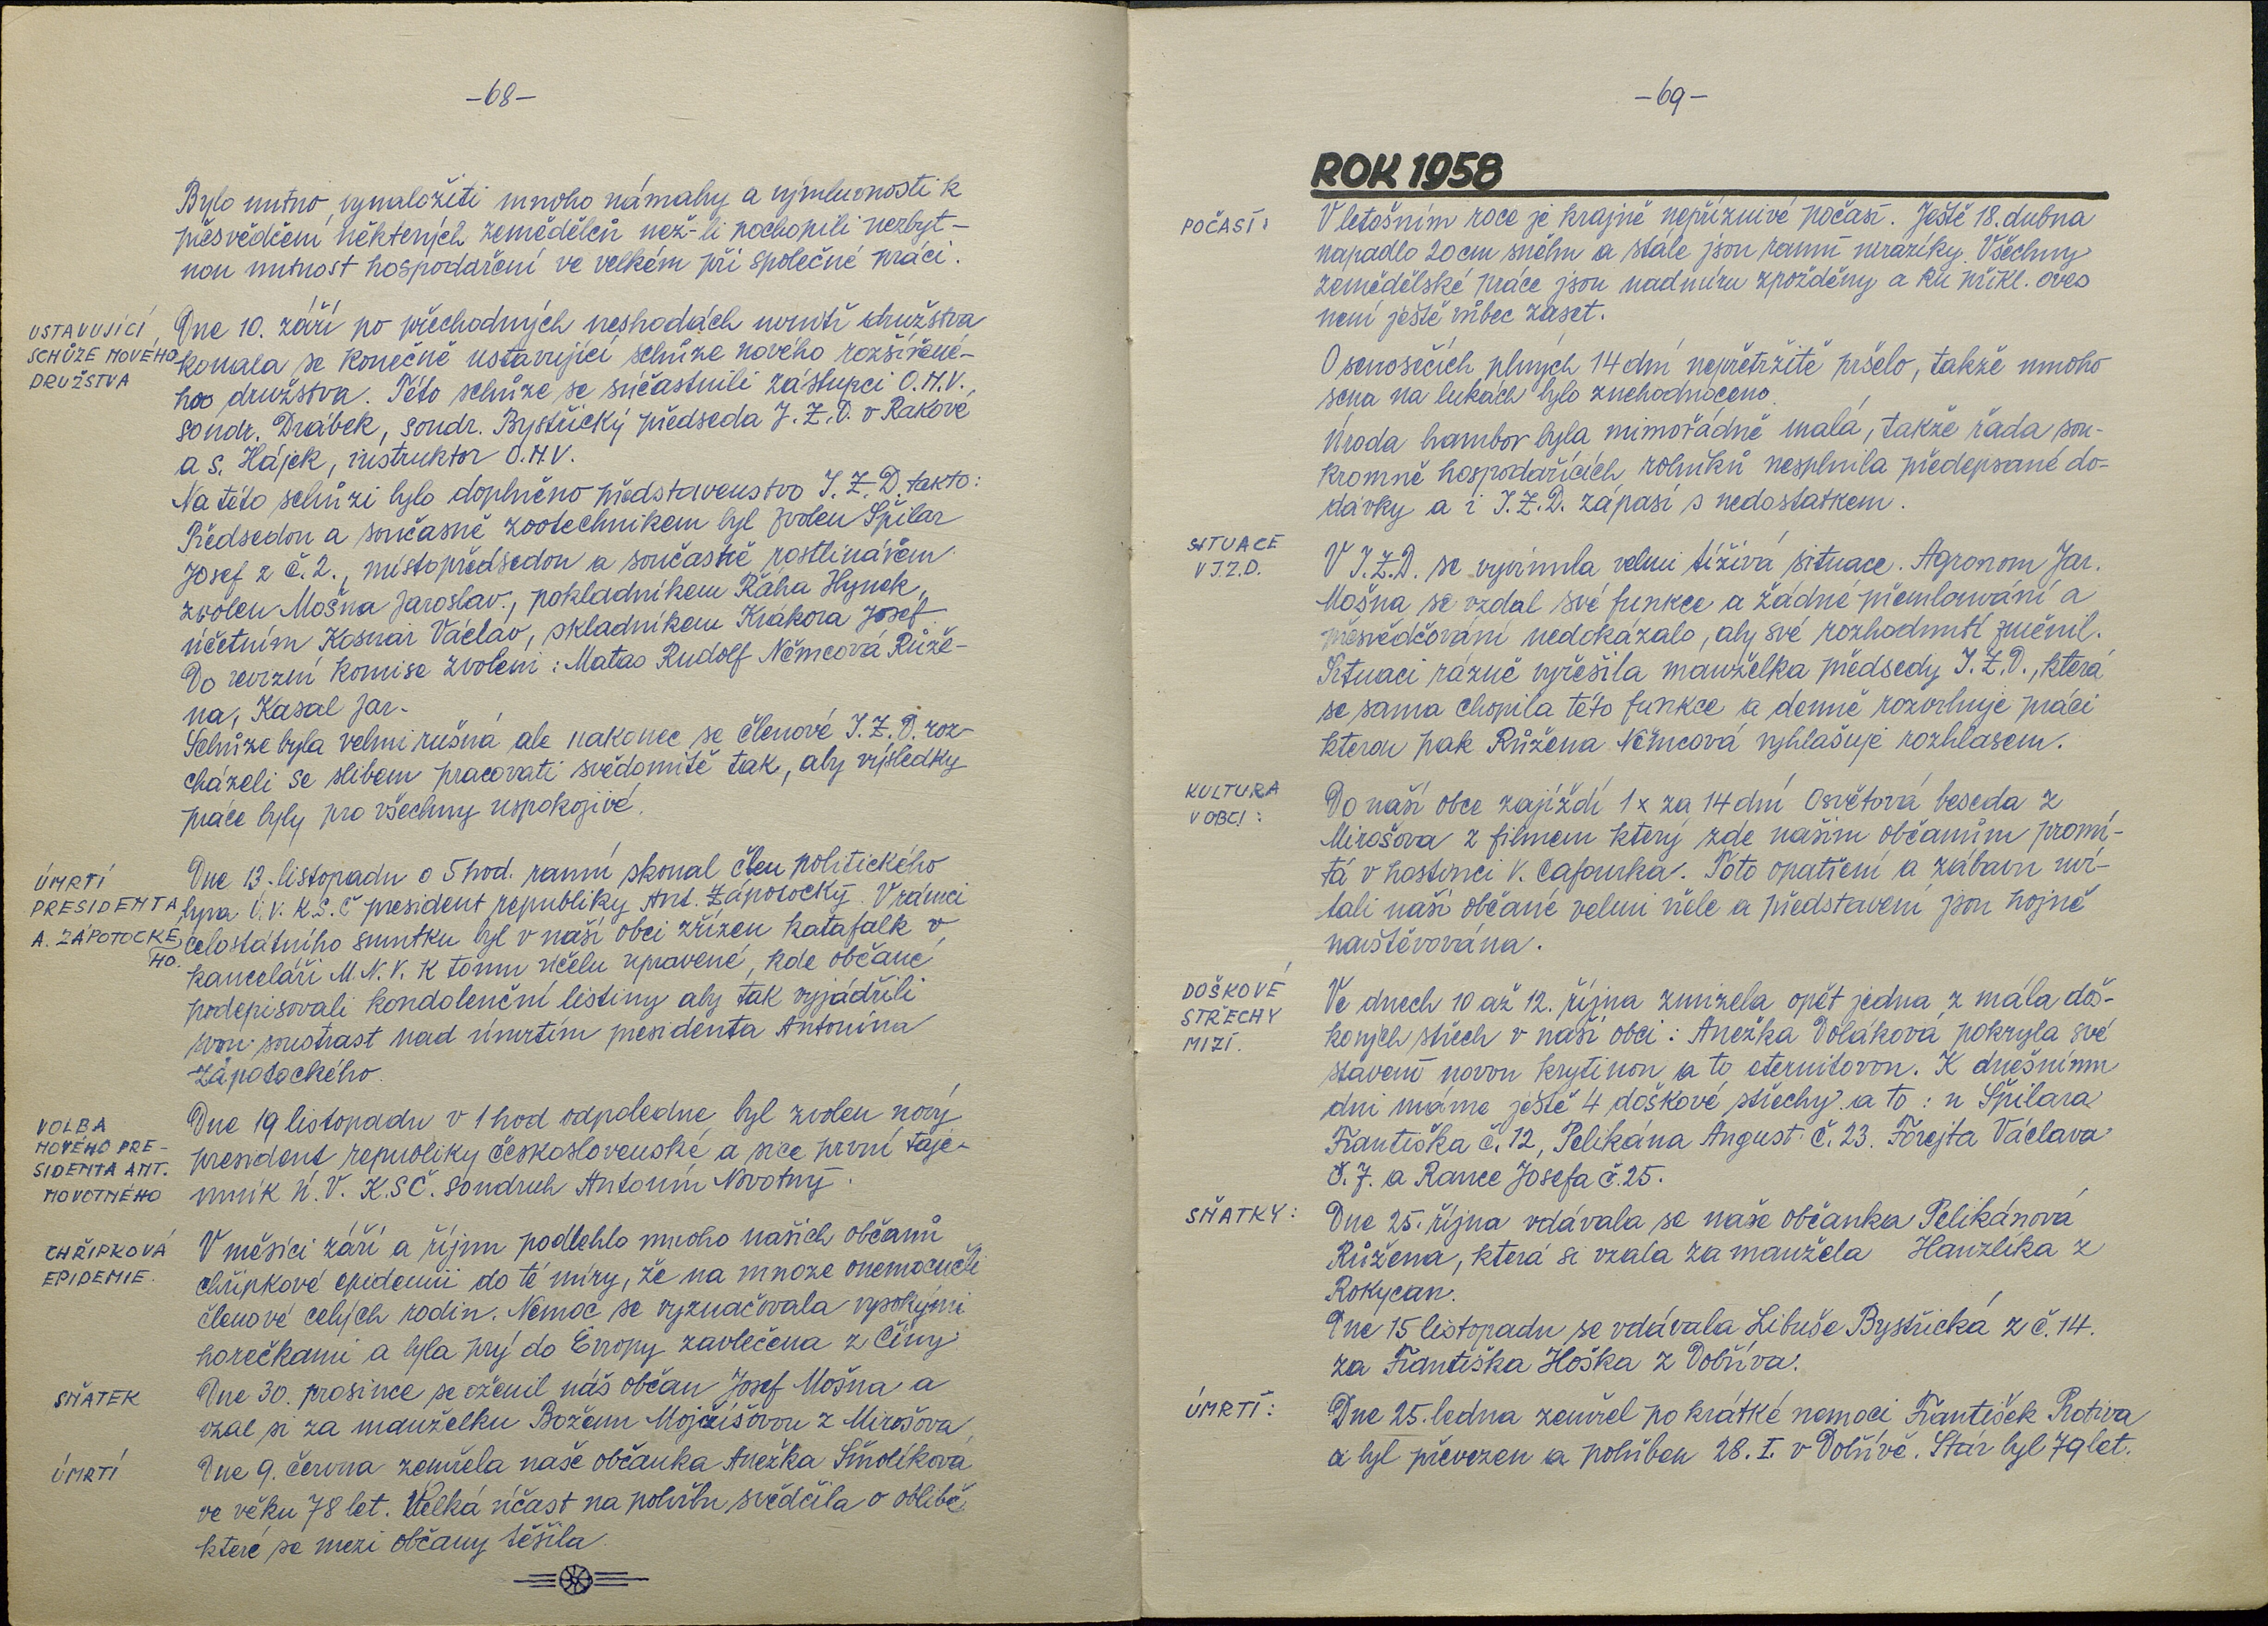 -68-
Bylo nutno vynaložiti mnoho námahy a výmluvnosti k
přesvědčení některých zemědělců než-li pochopili nezbyt-
nou nutnost hospodaření ve velkém při společné práci.
USTAVUJÍCÍ
SCHŮZE NOVÉHO
DRUŽSTVA
Dne 10. září po přechodných neshodách uvnitř družstva
konala se konečně ustavující schůze nového rozšířené-
hoo družstva. Této schůze se súčastnili zástupci O.N.V.
soudr. Drábek, soudr. Bystřický předseda J.Z.D. v Rakové
a s. Hájek, instruktor O.N.V.
Na této schůzi bylo doplněno představenstvo J.Z.D. takto:
Předsedou a současně zootechnikem byl zvolen Špilar
Josef z č. 2., místopředsedou a současně rostlinářem
zvolen Mošna Jaroslav., pokladníkem Řáha Hynek,
účetním Kosnar Václav, skladníkem Krákora Josef
Do revizní komise zvoleni: Matas Rudolf Němcová Růže-
na, Kasal Jar.
Schůze byla velmi rušná ale nakonec se členové J.Z.D. roz-
cházeli se slibem pracovati svědomitě tak, aby výsledky
práce byly pro všechny uspokojivé.
ÚMRTÍ
PRESIDENTA
A. ZÁPOTOCKÉ
HO.
Dne 13. listopadu o 5 hod. ranní skonal člen politického
byra Ú.V. K.S.Č president republiky Ant. Zápotocký. V rámci
celostátního smutku byl v naší obci zřízen katafalk v
kanceláři M.N.V. k tomu účelu upravené, kde občané
podepisovali kondolenční listiny aby tak vyjádřili
svou soustrast nad úmrtím presidenta Antonína
Zápotockého.
VOLBA
NOVÉHO PRE-
SIDENTA ANT.
NOVOTNÉHO
Dne 19 listopadu v 1 hod odpoledne byl zvolen nový
president republiky československé a sice první taje-
mník Ú.V. K.SČ. soudruh Antonín Novotný.
CHŘIPKOVÁ
EPIDEMIE.
V měsíci září a říjnu podlehlo mnoho našich občanů
chřipkové epidemii do té míry, že na mnoze onemocněli
členové celých rodin. Nemoc se vyznačovala vysokými
horečkami a byla prý do Evropy zavlečena z Číny
SŇATEK
Dne 30. prosince se oženil náš občan Josef Mošna a
vzal si za manželku Boženu Mojžíšovou z Mirošova
ÚMRTÍ
Dne 9. června zemřela naše občanka Anežka Smolíková
ve věku 78 let. Velká účast na pohřbu svědčila o oblibě
které se mezi občany těšila.
-69-
ROK 1958
POČASÍ:
V letošním roce je krajně nepříznivé počasí. Ještě 18. dubna
napadlo 20 cm sněhu a stále jsou ranní mrazíky. Všechny
zemědělské práce jsou nadmíru zpožděny a ku příkl. oves
není ještě vůbec zaset.
O senosečích plných 14 dní nepřetržitě pršelo, takže mnoho
sena na lukách bylo znehodnoceno.
Úroda brambor byla mimořádně malá, takže řada sou-
kromně hospodařících rolníků nesplnila předepsané do-
dávky a i J.Z.D. zápasí s nedostatkem.
SITUACE
V J.Z.D.
V J.Z.D. se vyvinula velmi tíživá situace. Agronom Jar.
Mošna se vzdal své funkce a žádné přemlouvání a
přesvědčování nedokázalo, aby své rozhodnutí změnil.
Situaci rázně vyřešila manželka předsedy J.Z.D., která
se sama chopila této funkce a denně rozvrhuje práci
kterou pak Růžena Němcová vyhlašuje rozhlasem.
KULTURA
V OBCI:
Do naší obce zajíždí 1x za 14 dní Osvětová beseda z
Mirošova z filmem který zde našim občanům promí-
tá v hostinci V. Cafourka. Toto opatření a zábavu uví-
tali naši občané velmi vřele a představení jsou hojně
navštěvována.
DOŠKOVÉ
STŘECHY
MIZÍ.
Ve dnech 10 až 12. října zmizela opět jedna z mála doš-
kových střech v naší obci: Anežka Voláková pokryla své
stavení novou krytinou a to eternitovou. K dnešnímu
dni máme ještě 4 doškové střechy a to: u Špilara
Františka č. 12, Pelikána August. č. 23. Fořejta Václava
č. 7. a Rance Josefa č. 25.
SŇATKY:
Dne 25. října vdávala se naše občanka Pelikánová
Růžena, která si vzala za manžela Hanzlíka z
Rokycan.
Dne 15 listopadu se vdávala Libuše Bystřická z č. 14.
za Františka Hoška z Dobříva.
ÚMRTÍ:
Dne 25. ledna zemřel po krátké nemoci František Protiva
a byl převezen a pohřben 28. I. v Dobřívě. Stár byl 79 let.